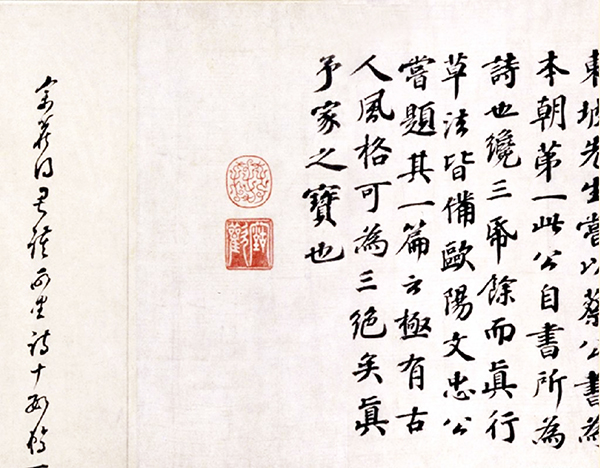 東坡先生嘗以蔡公書為
本朝第一此公自書所為
詩也纔三帋餘而眞行
草法皆備歐陽文忠公
嘗題其一篇云極有古
人風格可為三絕矣眞
予家之寶也
君謨詩十